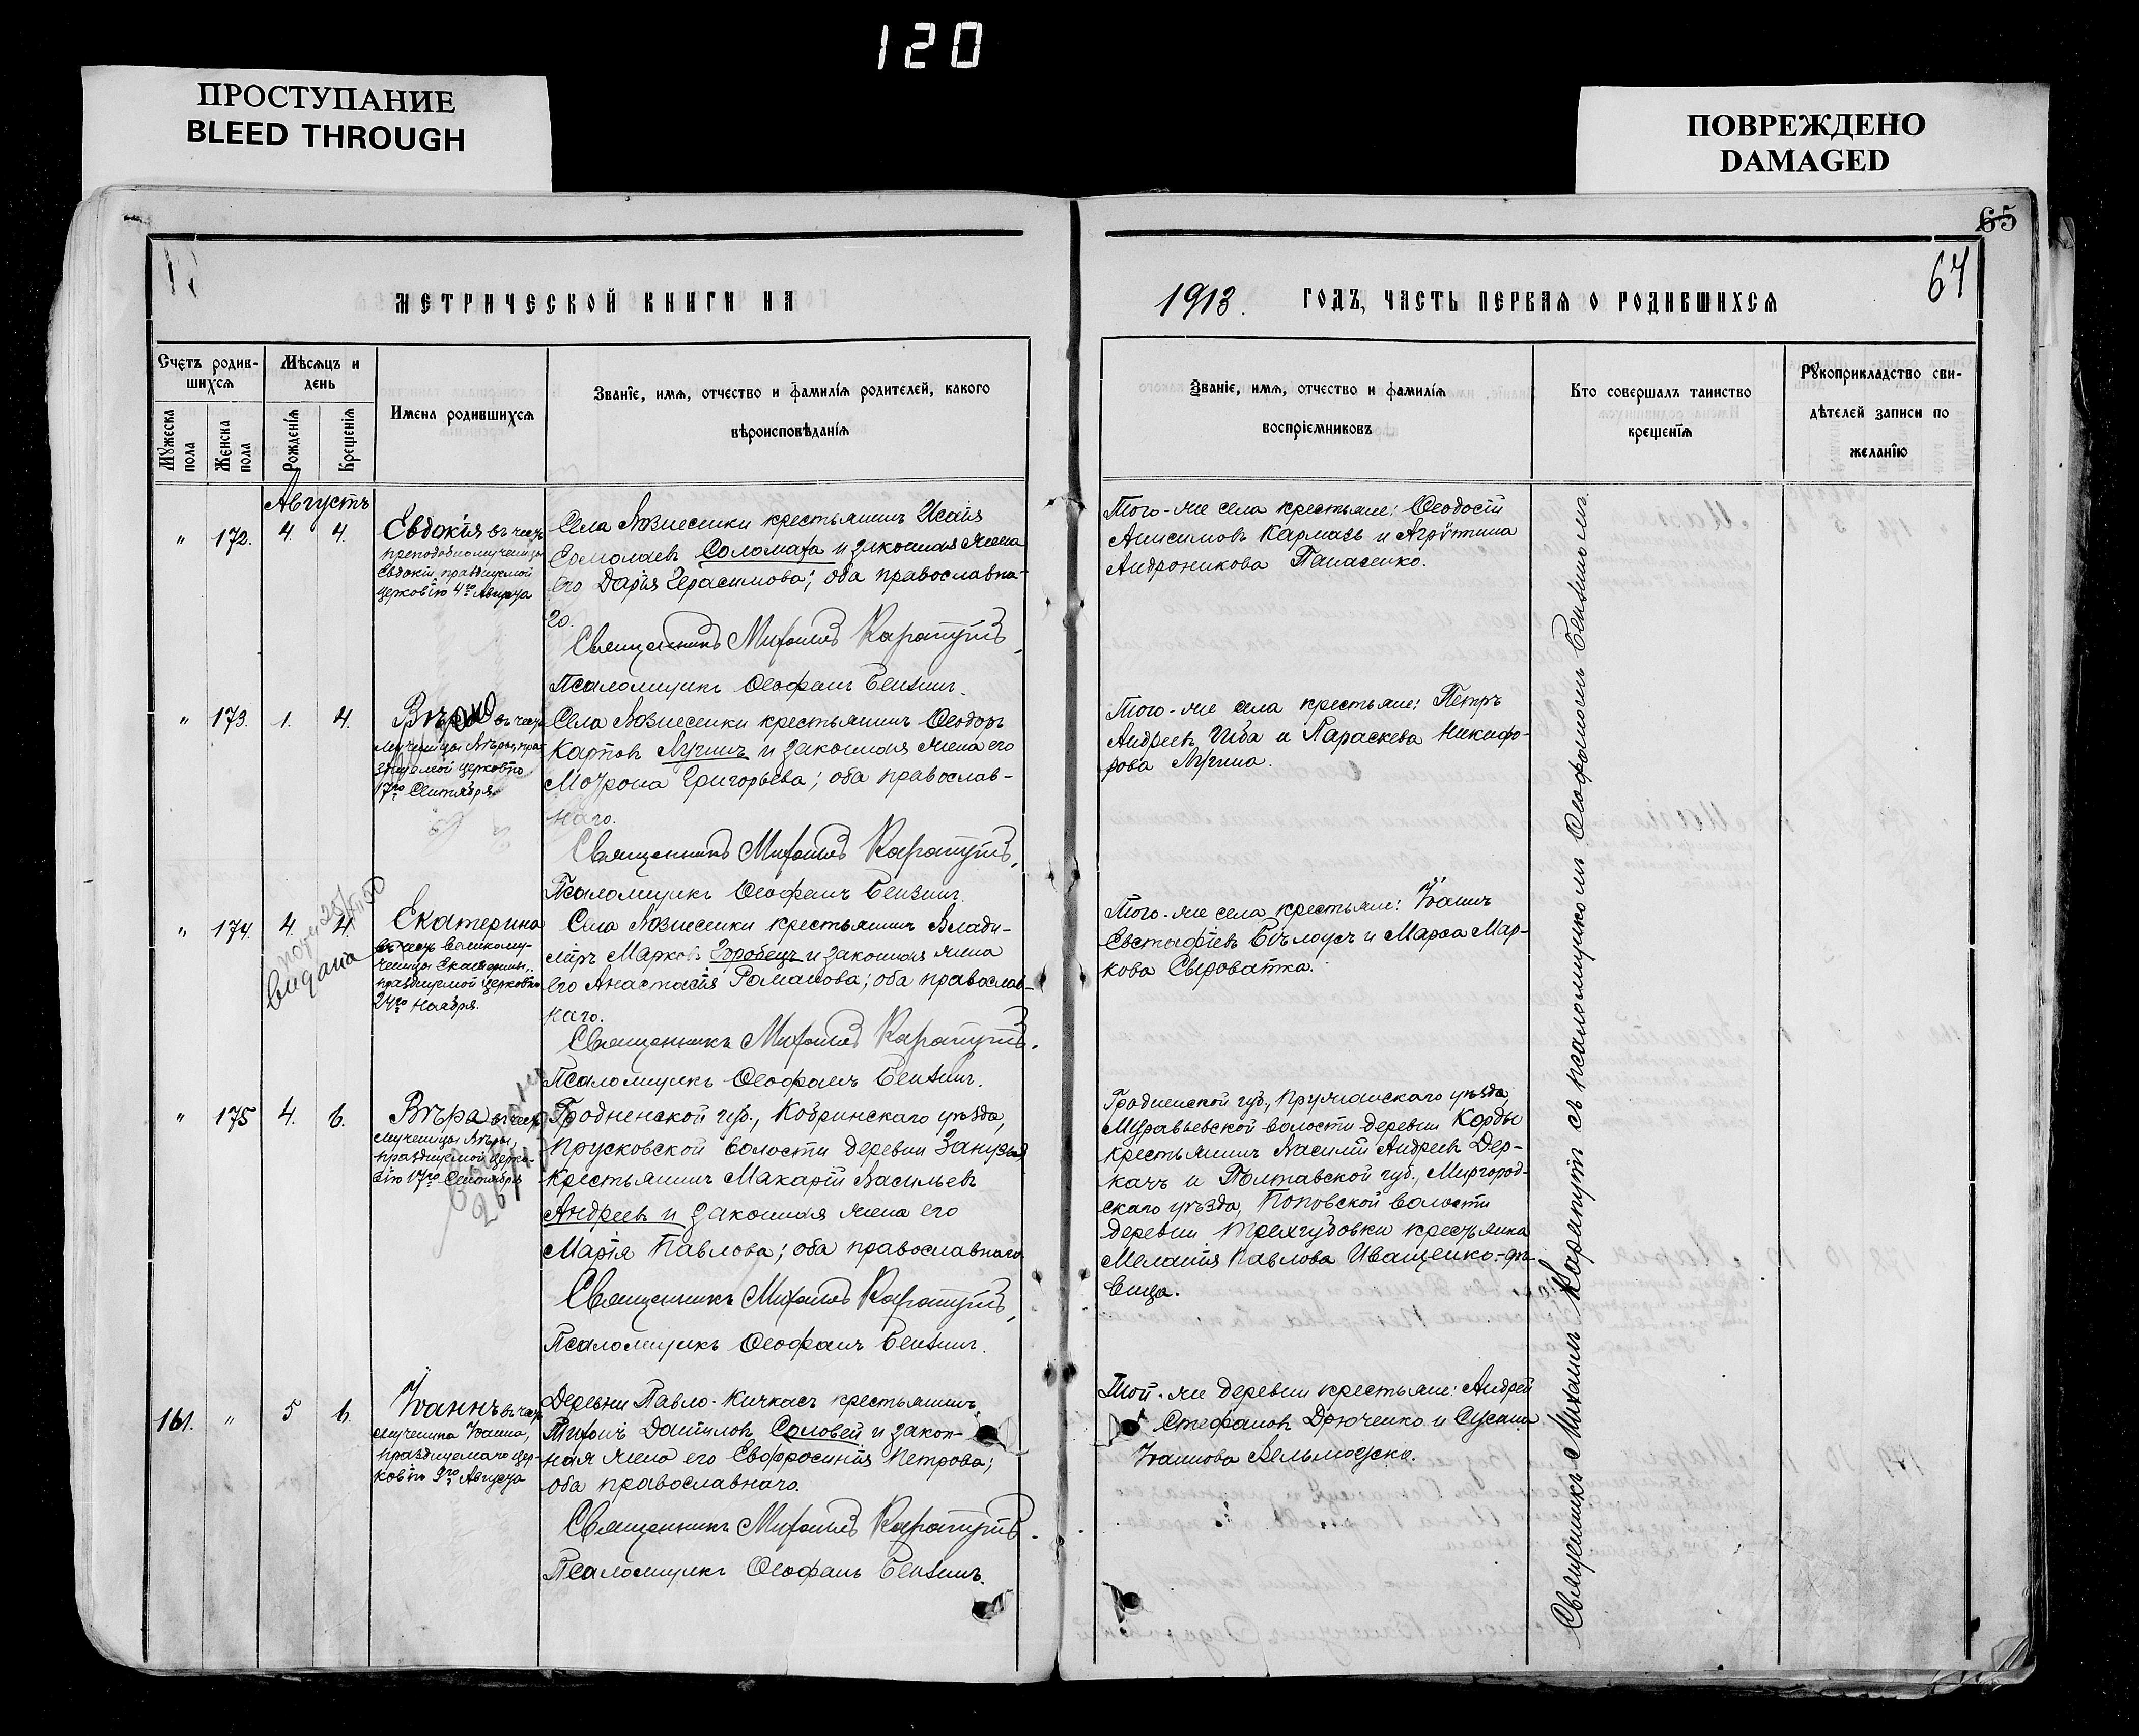 120
ПРОСТУПАНИЕ
BLEED THROUGH
ПОВРЕЖДЕНО
DAMAGED
65
64
МЕТРИЧЕСКОЙ КНИГИ НА
1913. ГОДЪ, ЧАСТЬ ПЕРВАЯ О РОДИВШИХСЯ
Счетъ родив-
шихся
Мужеска
пола
Женска
пола
Мѣсяцъ и
день
Рожденія
Крещенія
Имена родившихся
Званіе, имя, отчество и фамилія родителей, какого
вѣроисповѣданія
Званіе, имя, отчество и фамилія
воспріемниковъ
Кто совершалъ таинство
крещенія
Рукоприкладство сви-
дѣтелей записи по
желанію
Августъ
" 172. 4. 4.
Евдокія въ честь
преподобномученицы
Евдокіи, празднуемой
церковію 4го Августа
Села Вознесенки крестьянинъ Исаія
Ермолаевъ Соломаха и законная жена
его Дарія Герасимова; оба православна-
го.
Священникъ Михаилъ Карапутъ,
Псаломщикъ Ѳеофанъ Бензинъ.
Того-же села крестьяне: Ѳеодосій
Анисимовъ Кармазь и Агрӱппина
Андроникова Панасенко.
" 173. 1. 4.
Вѣра въ честь
мученицы Вѣры, пра-
зднуемой церковію
17го Сентября
Села Вознесенки крестьянинъ Ѳеодоръ
Карповъ Лучинъ и законная жена его
Матрона Григорьева; оба православ-
наго.
Священникъ Михаилъ Карапутъ,
Псаломщикъ Ѳеофанъ Бензинъ.
Того-же села крестьяне: Петръ
Андреевъ и Параскева Никифо-
рова Лучина.
" 174. 4. 4.
выдана
Екатерина
въ честь великому-
ченицы Екатерины,
празднуемой церковію
24го Ноября.
Села Вознесенки крестьянинъ Влади-
міръ Марковъ Горобецъ и законная жена
его Анастасія Романова; оба православ-
наго.
Священникъ Михаилъ Карапутъ.
Псаломщикъ Ѳеофанъ Бензинъ.
Того-же села крестьяне: Іоаннъ
Евстафіевъ Бѣлоусъ и Марѳа Мар-
кова Сыроватка.
" 175 4. 6.
Вѣра въ честь
мученицы Вѣры,
празднуемой церко-
вію 17го Сентября
Гродненской губ., Кобринскаго уѣзда,
Прусковской волости деревни Занузья
крестьянинъ Макарій Васильевъ
Андреевъ и законная жена его
Марія Павлова; оба православнаго
Священникъ Михаилъ Карапутъ,
Псаломщикъ Ѳеофанъ Бензинъ.
Гродненской губ., Пружанскаго уѣзда,
Муравьевской волости деревни Корды
крестьянинъ Василій Андреевъ Дер-
качъ и Полтавской губ., Миргород-
скаго уѣзда, Поповской волости
деревни Трехгубовки крестьянка
Меланія Павлова Иващенко.-дѣ-
вица.
161. " 5 6.
Іоаннъ въ честь
мученика Іоанна,
празднуемаго цер-
ковію 9го Августа
Деревни Павло-Кичкасъ крестьянинъ
Тихонъ Даниловъ Соловей и закон-
ная жена его Евфросинія Петрова;
оба православнаго.
Священникъ Михаилъ Карапутъ.
Псаломщикъ Ѳеофанъ Бензинъ.
Той-же деревни крестьяне: Андрей
Стефановъ Дрюченко и Сусанна
Іоаннова Вельможко.
Священникъ Михаилъ Карапутъ съ псаломщикомъ Ѳеофаномъ Бензиномъ.